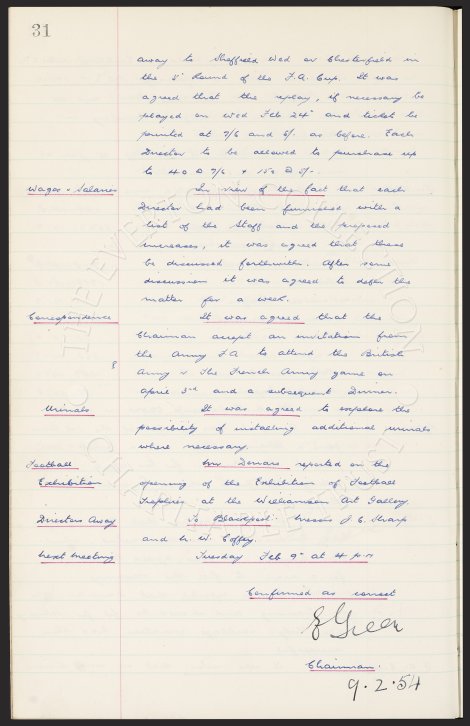 31
away to Sheffield Wed or Chesterfield in
the 5th Round of the F.A. Cup. It was
agreed that the replay, if necessary be
played on Wed Feb 24th and tickets be
printed at 7/6 and 5/- as before. Each
Director to be allowed to purchase up
to 40 @ 7/6 + 150 @ 5/-.
Wages & Salaries In view of the fact that each
Director had been furnished with a
list of the Staff and the proposed
increases, it was agreed that these
be discussed forthwith. After some
discussion it was agreed to defer the
matter for a week.
Correspondence It was agreed that the
Chairman accept an invitation from
the Army F.A. to attend the British
Army v The French Army game on
April 3rd and a subsequent Dinner.
Urinals It was agreed to explore the
possibility of installing additional urinals
where necessary.
Football Exhibition Mr. reported on the
opening of the Exhibition of Football
Trophies at the Williamson Art Gallery.
Directors Away To Blackpool: Messrs J.C. Sharp
and C. W. Coffey.
Next Meeting Tuesday Feb 9th at 4 p.m
Confirmed as correct
E Green
Chairman.
9.2.54
THE EVERTON COLLECTION
CHARITABLE TRUST